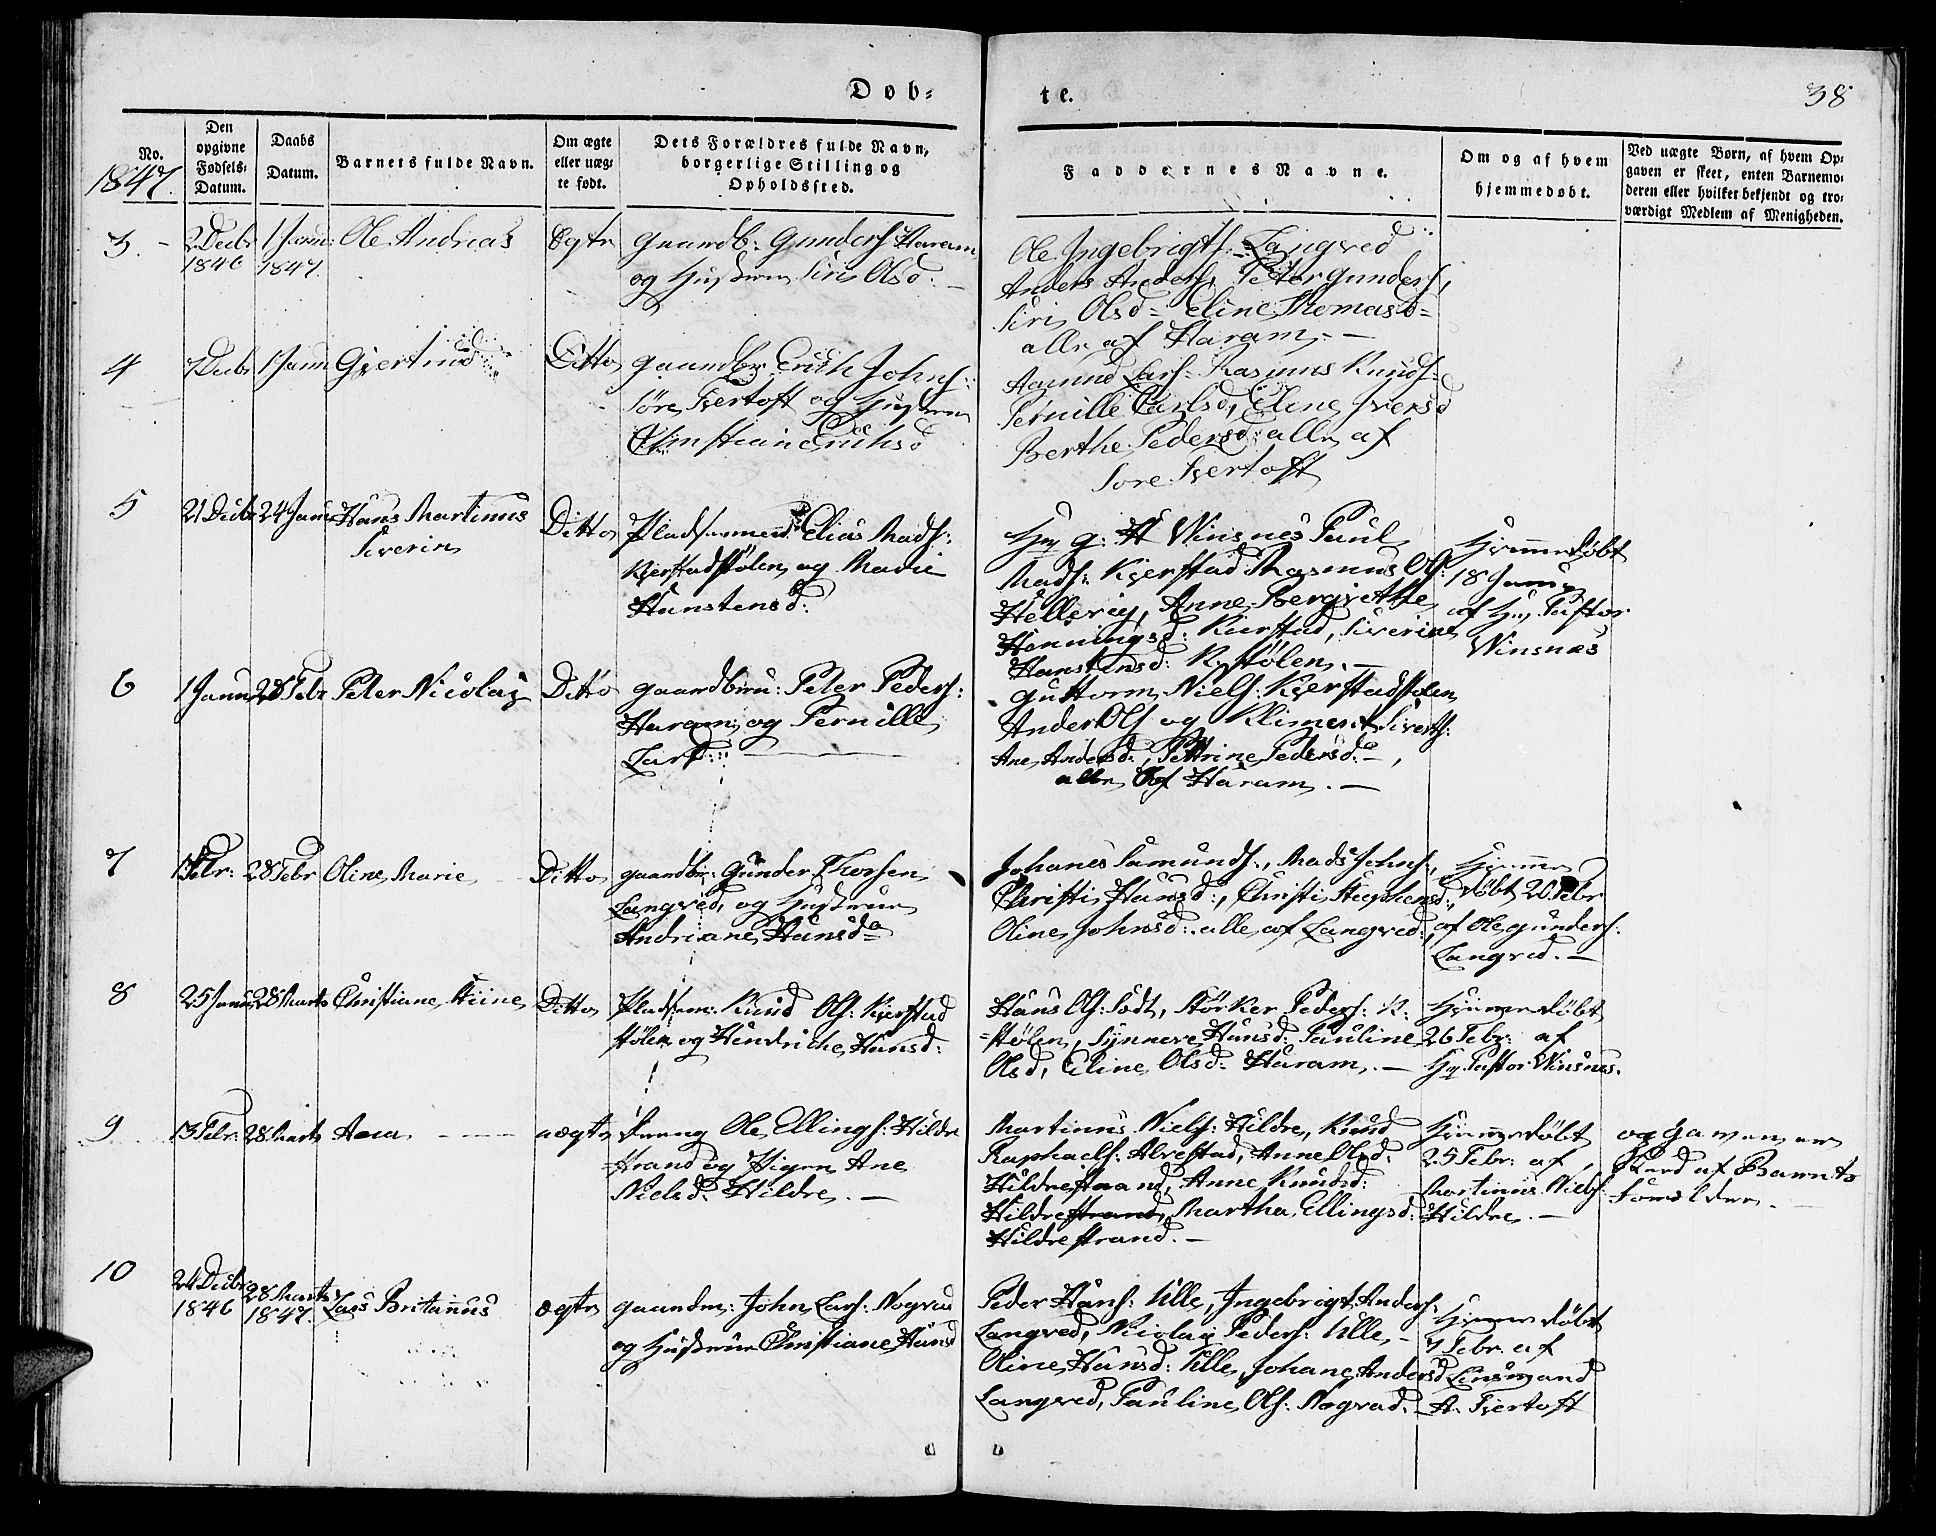 Døb=
te.
38
No.
1847.
Den
opgivne
Fødsels-
Datum.
Daabs
Datum.
Barnets fulde Navn.
Om ægte
eller uæg-
te født.
Dets Forældres fulde Navn,
borgerlige Stilling og
Opholdssted.
Faddernes Navne.
Om og af hvem
hjemmedøbt.
Ved uægte Børn, af hvem Op-
gaven er skeet, enten Barnemo-
deren eller hvilket bekjendt og tro-
værdigt Medlem af Menigheden.
3.
2 Decbr
1846
1 Janu:
1847.
Ole Andreas
Ægte
Gaardb: Gunders Haram
og Hustrue Siri Olsd.
Ole Ingebrigts: Langved
Anders Anders, Petter Gunders,
Siri Olsd= Eline Thomasd=
alle af Haram. —
4
7 Decbr
1 Janu
Gjertrud
Ditto
Gaardbr: Erich Johns:
Søre Tvertoft og Hustrue
Christiane Erichsd
Aamund Lars= Rasmus Knuds=
Petnille Carlsd, Eline Iversd
Berthe Pedersd: alle af
Søre Tvertoft
5
21 Decbr
24 Janu
Hans Martinus
Siverin
Ditto
Pladsemend: Elias Mads:
Kjerstadstølen og Marie
Hanstensd:
Hr G: H Winsnes Paul
Mads: Kjerstad Rasmus Ols:
Hellevig, Anne Bergitthe
Henningsd: Kierstad, Siverine
Hanstensd: K:stølen. —
Hjemmedøbt
18 Janu
af Hr Pastor
Winsnæs
6
1 Janu
28 Febr
Peter Nicolay
Ditto
Gaardbru: Peter Peders:
Haram og Pernille
Larsd:
Guttorm Niels: Kjerstadstølen
Ander Ols og Kliment Siverts:
Ane Andersd:, Pettrine Pedersd. —,
alle af Haram. —
7
1 Febr:
28 Febr
Oline Marie
Ditto
Gaardbr: Gunder Thorsen
Langved, og Hustrue
Andriane Hansda
Johanes Samunds:, Mads Johns:,
Christi Hansd:, Christi Stephensd:,
Oline Johnsd: alle af Langved:
Hjemme
døbt 20 Febr
af Ole Gunders:
Langved. —
8
25 Janu
28 Marts
Christiane Stine
Ditto
Pladsem: Knud Ols: Kjerstad
stølen og Hendriche Hansd:
Hans Ols: Sødt, Størker Peders: K:
=stølen, Synneve Hansd: Pauline
Olsd, Eline Olsd: Haram. —
Hjemmedøbt
26 Febr: af
Hr Pastor Winsnes.
9
13 Febr:
28 Marts
Anna
uægte
Dreng Ole Ellings: Hildre
strand og Pigen Ane
Nielsd: Hildre. —
Martinus Niels: Hildre, Knud
Raphaels: Alvestad, Anne Olsd:
Hildrestrand, Anne Knudsd:
Hildrestrand, Martha Ellingsd:
Hildrestrand. —
Hjemmedøbt
25 Febr: af
Martinus Niels:
Hildre. —
opgaven er
skeed af Barnets
Forældre. —
10
24 Decbr
1846
28 Marts
1847.
Lars Britanus
ægte
Gaardm: John Lars: Nogvad
og Hustrue Christiane Hansd
Peder Hans: Ulle, Ingebrigt Anders:
Langved, Nicolay Peders: Ulle, —
Oline Hansd: Ulle, Johane Andersd
Langved, Pauline Ols: Nogvad. —
Hjemmedøbt
7 Febr: af
Lensmand
A. Tvertoft